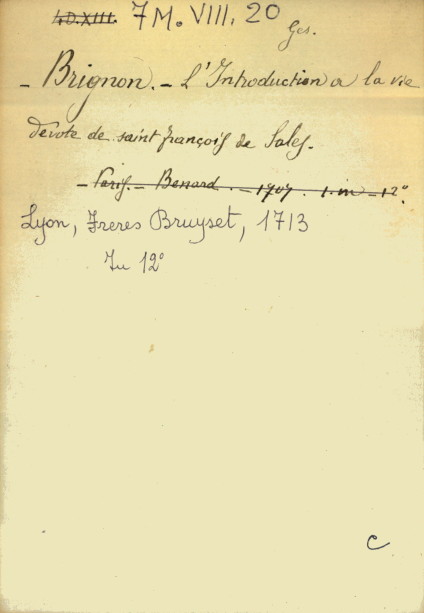 4D.XIII. 7M.VIII.20
Ges.
- Brignon. - L'Introduction a la vie
dévote de saint françois de Sales.
- Paris - Benard. - 1707. 1. in - 12°.
Lyon, Freres Bruyset, 1713
In 12°
C